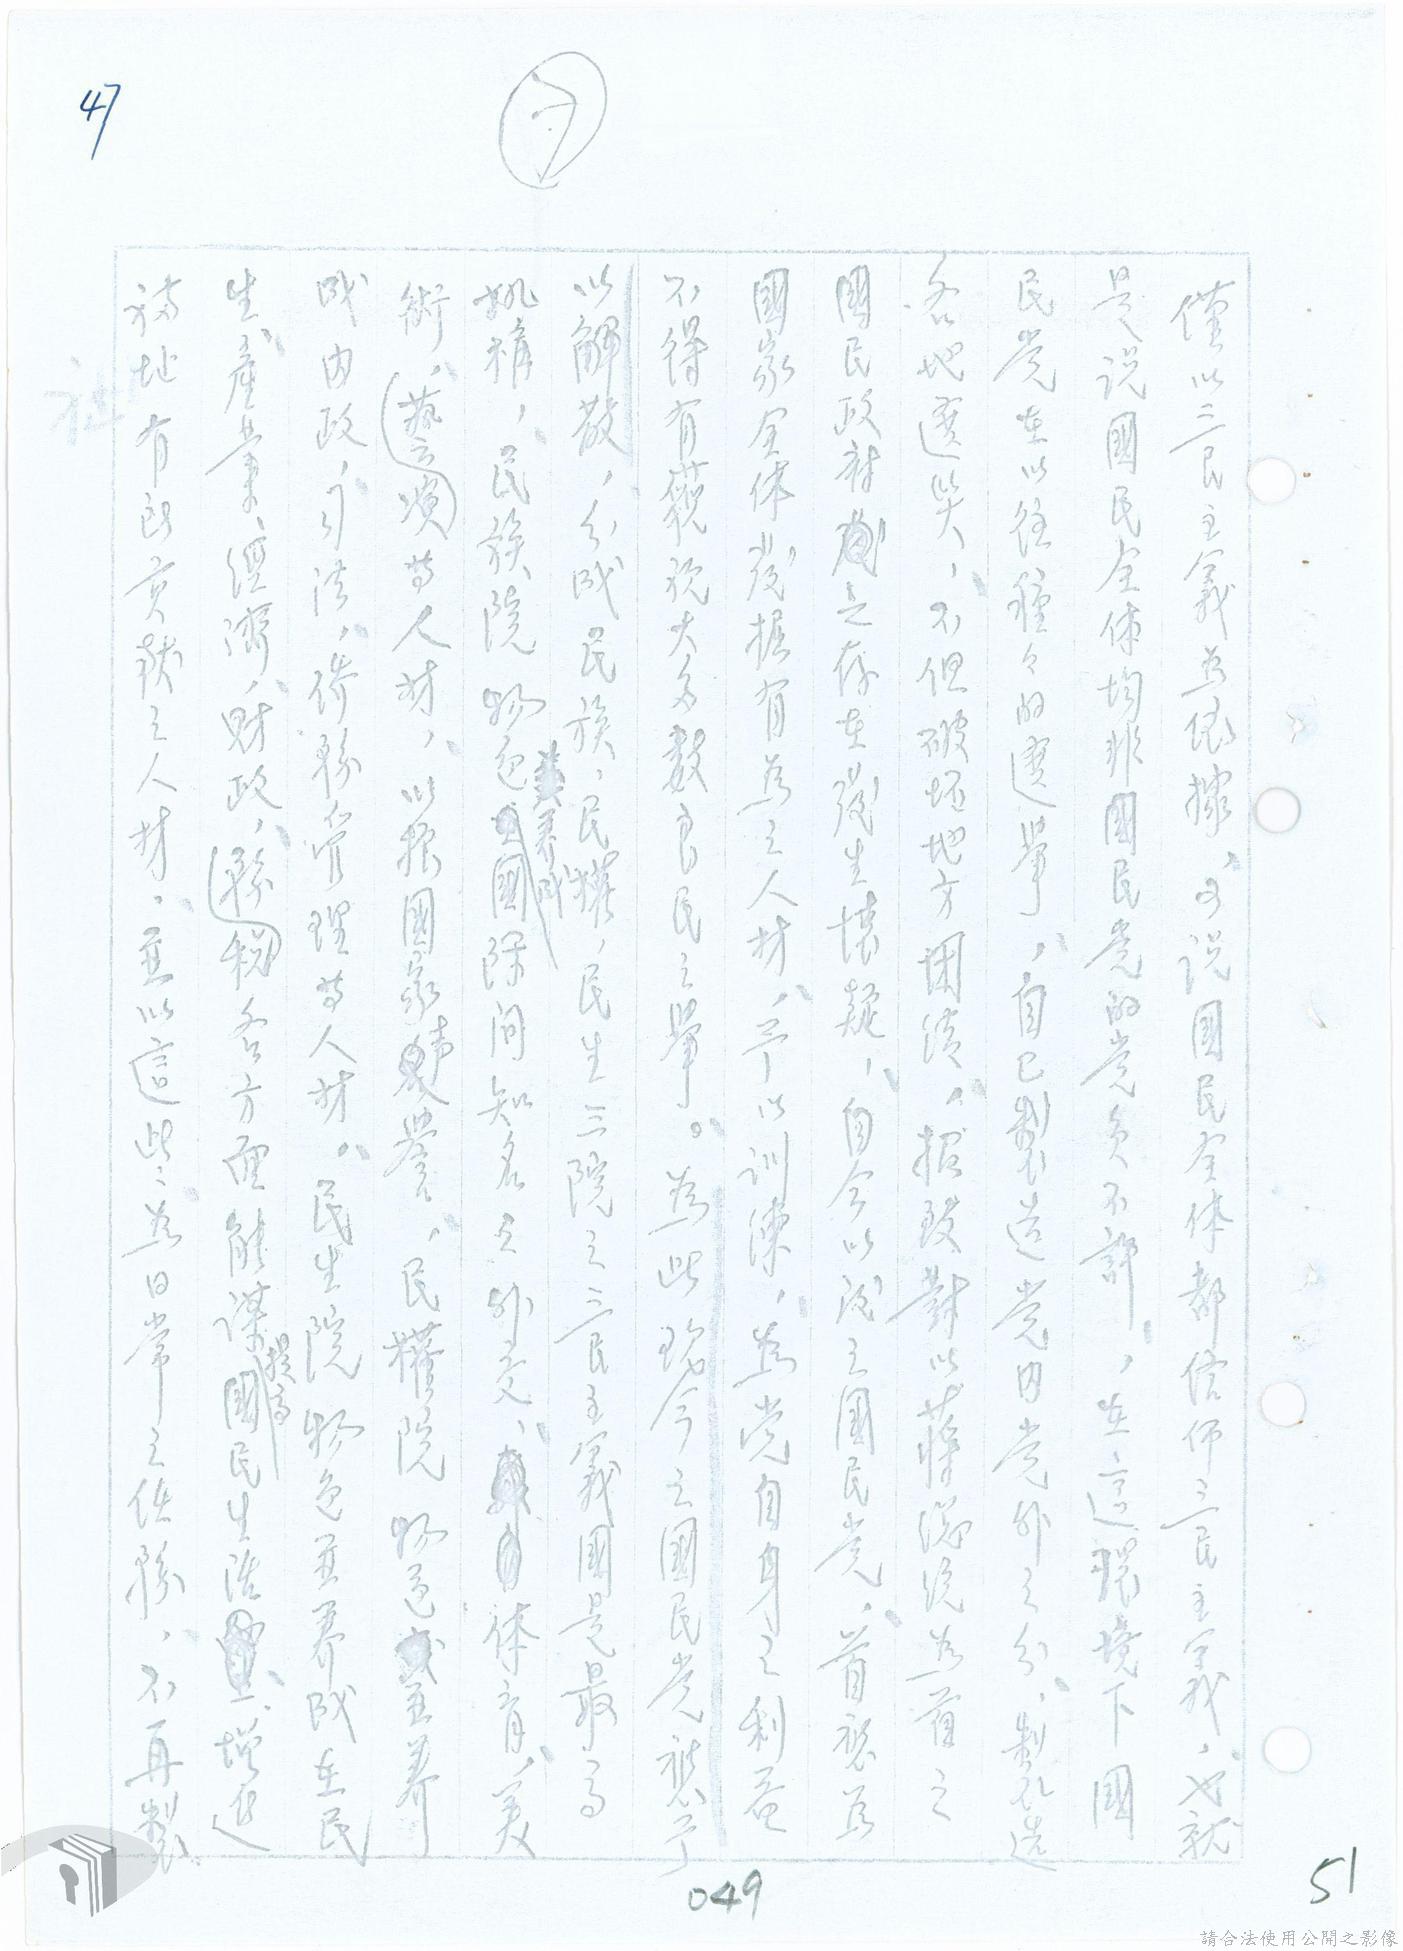 47
僅以三民主義為依據，可說國民全体都信仰三民主義，也就
是說國民全体均非國民党的党員不許，在這環境下國
民党在以往種々的選舉，自己製造党内党外之分，製造
各地選災，不但破坏地方团結，招致對以蔣總統為首之
國民政府之存在發生懷疑，自今以後之國民党，首應為
國家全体發掘有為之人材，予以訓練，為党自身之利益
不得有藐視大多數良民之舉。為此現今之國民党應予
以解散，分成民族，民權，民生三院之三民主義國是最高
机構，民族院物色養成國際间知名之外交，体育，美
術，藝演等人材，以振國家声譽，民權院物色並養
成内政，司法，僑務管理等人材。民生院物色並養成在民
生產業，經濟，財政，稅務各方面能謀國民生活提高，增進
福址有所貢献之人材，並以這些為日常之任務，不再製
社
049
51
請合法使用公開之影像